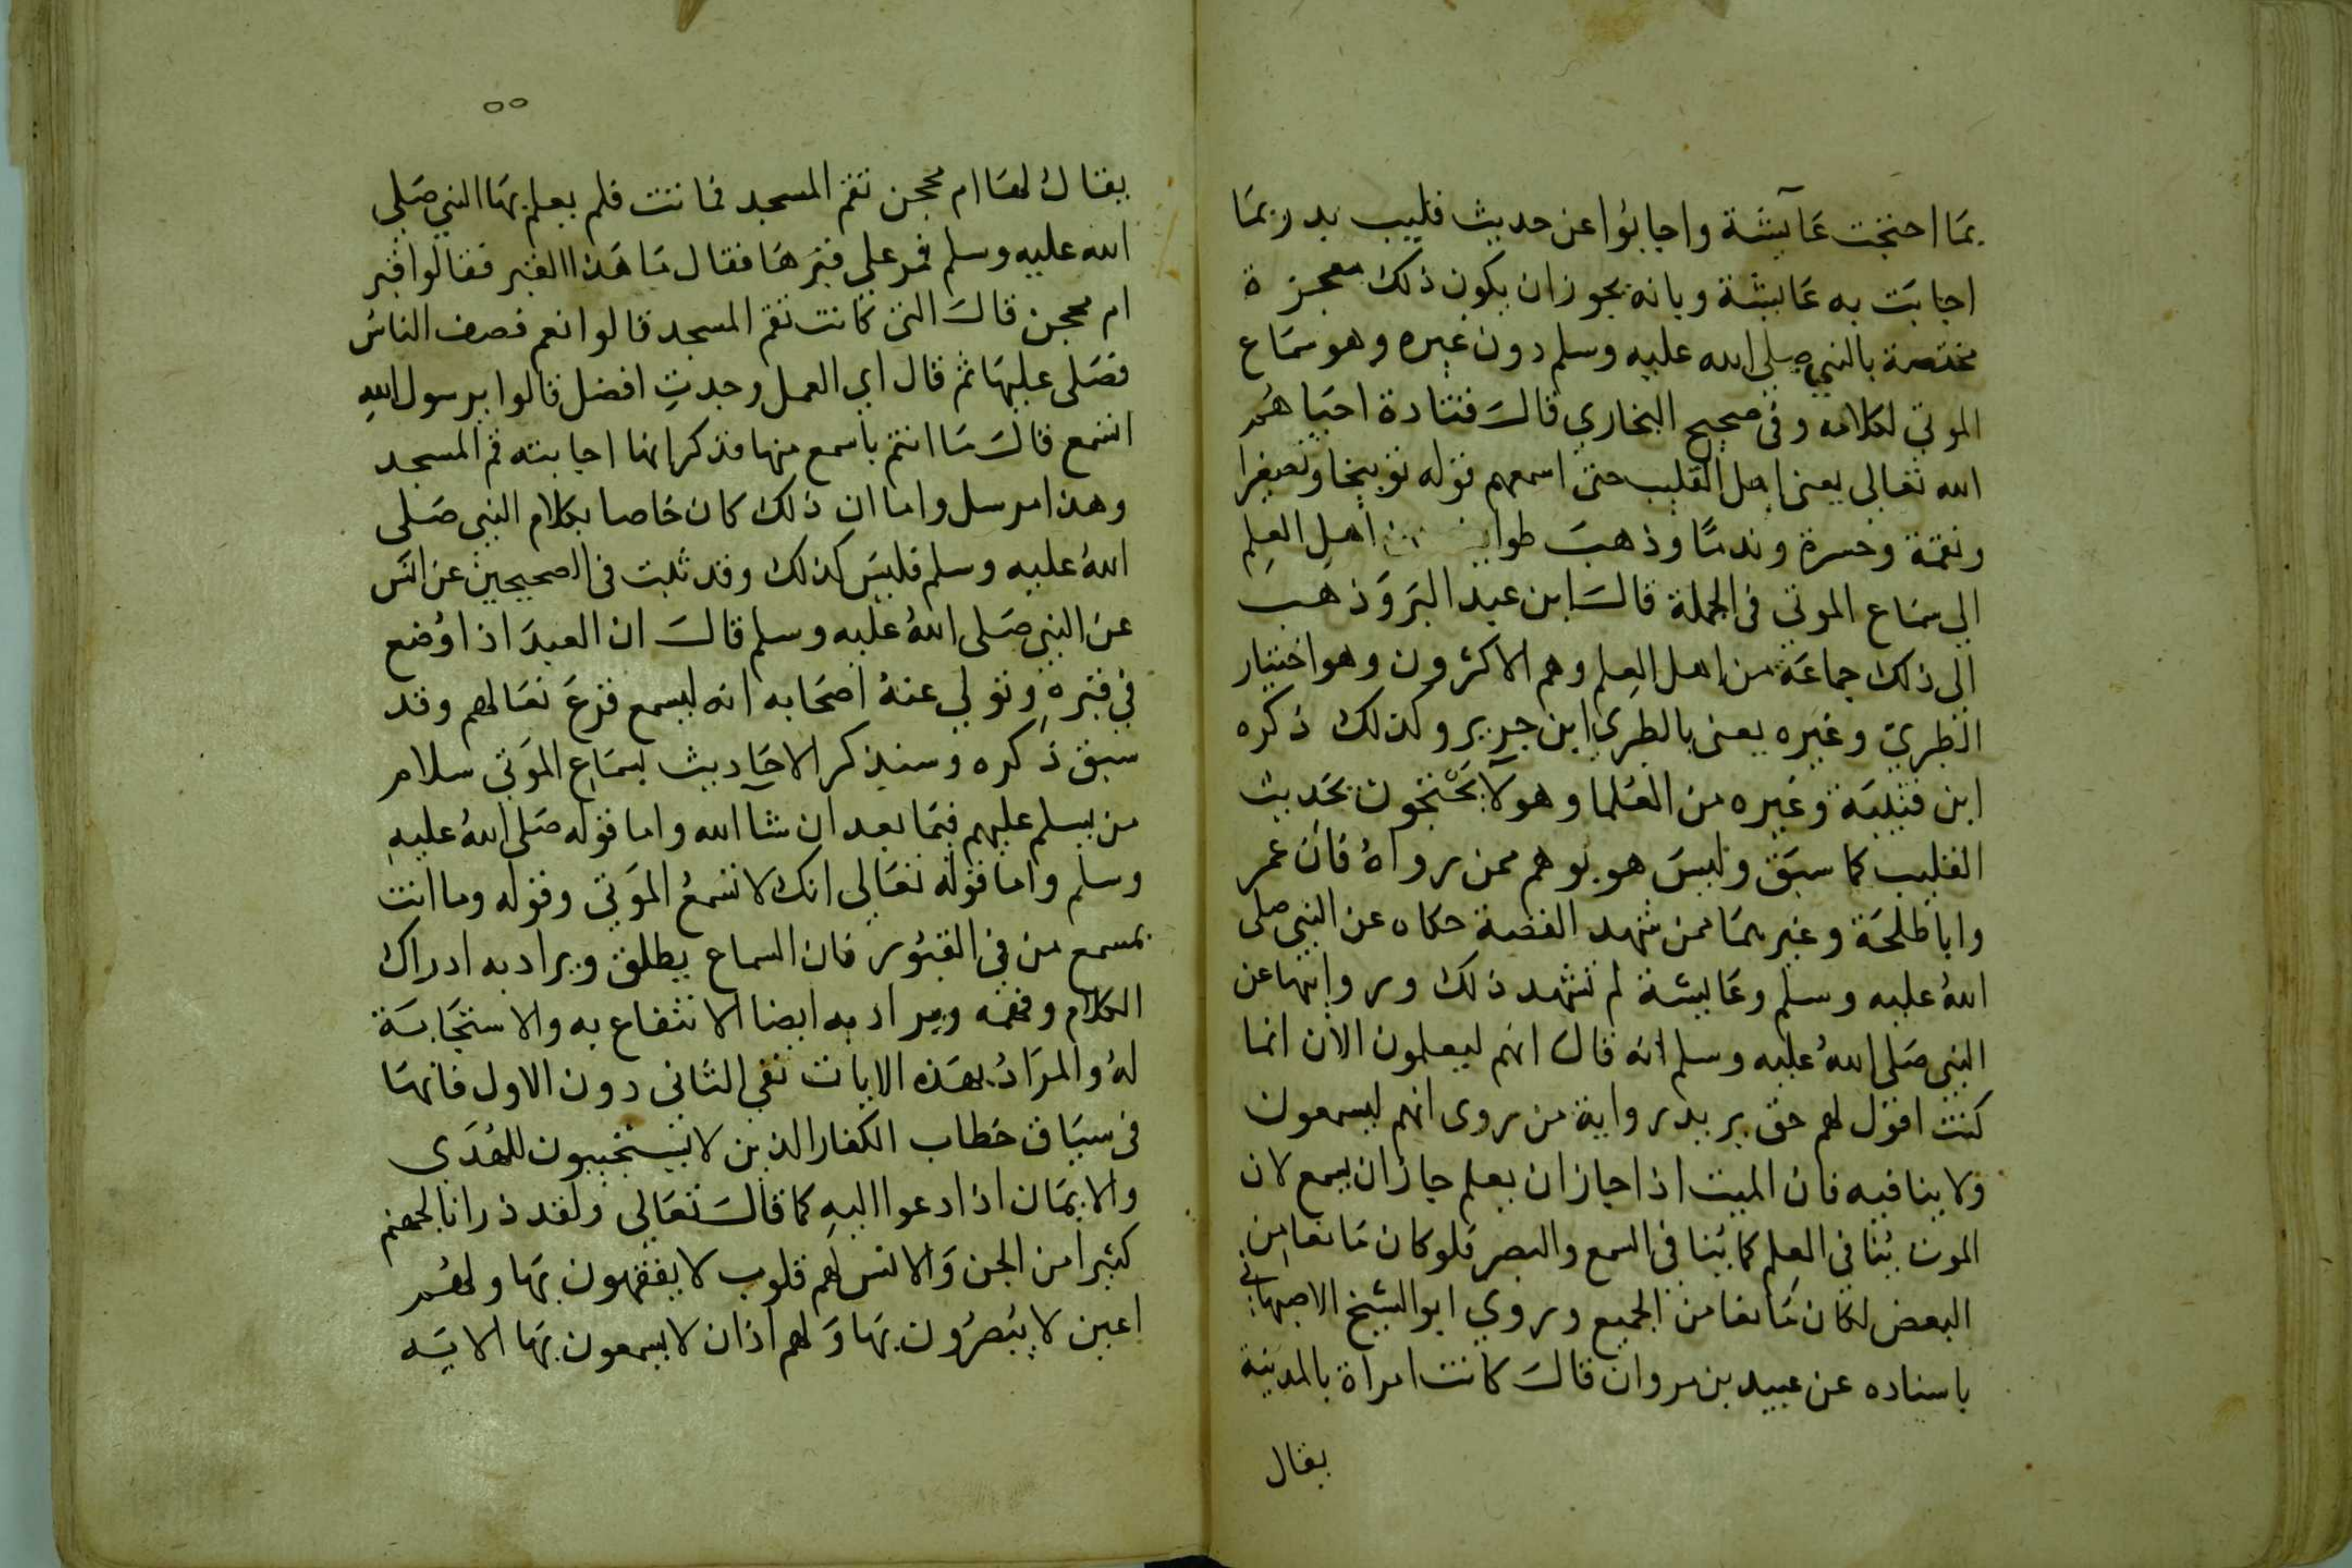 بما احتجت عآيشة واجابوا عن حديث قليب بدر بما
اجابت به عايشة وبانه يجوز ان يكون ذلك معجزة
مختصة بالنبي صلى الله عليه وسلم دون غيره وهو سماع
الموتي لكلامه وفي صحيح البخاري قال قتادة احياهم
الله تعالى يعنى اهل القليب حتى اسمعهم قوله توبيخا وتصغيرا
ونقمة وحسرة وندما وذهب طوايف من اهل العلم
الي سماع الموتي في الجملة قال ابن عبد البر وذهب
الى ذلك جماعة من اهل العلم وهم الاكثرون وهو اختيار
الطبري وغيره يعنى بالطبري ابن جرير وكذلك ذكره
ابن قتيبة وغيره من العلما وهولا يحتجون بحديث
القليب كما سبق وليس هو بوهم ممن رواه فان عمر
وابا طلحة وغيرهما ممن شهد القصة حكاه عن النبي صلى
الله عليه وسلم وعايشة لم تشهد ذلك وروايتها عن
النبي صلى الله عليه وسلم انه قال انهم ليعلمون الان انما
كنت اقول لهم حق يريد رواية من روى انهم ليسمعون
ولا ينافيه فان الميت اذا جاز ان يعلم جاز ان يسمع لان
الموت ينافي العلم كما ينافى السمع والبصر فلو كان مانعا من
البعض لكان مانعا من الجميع وروي ابو الشيخ الاصبهاني
باسناده عن عبيد بن مروان قال كانت امراة بالمدينة
يقال
٥٥
يقال لها ام محجن تقم المسجد فماتت فلم يعلم بها النبي صلى
الله عليه وسلم فمر علي قبرها فقال ما هذا القبر فقالوا قبر
ام محجن قال التى كانت تقم المسجد قالوا نعم فصف الناس
فصلى عليها ثم قال اي العمل وجدت افضل قالوا يرسول الله
اتسمع قال ما انتم باسمع منها فذكر انها اجابته قم المسجد
وهذا مرسل واما ان ذلك كان خاصا بكلام النبي صلى
الله عليه وسلم فليس كذلك وقد ثبت في الصحيحين عن انس
عن النبي صلى الله عليه وسلم قال ان العبد اذا وضع
في قبره وتولي عنه اصحابه انه ليسمع قرع نعالهم وقد
سبق ذكره وسنذكر الاحاديث لسماع الموتي سلام
من يسلم عليهم فيما بعد ان شا الله واما قوله صلى الله عليه
وسلم واما قوله تعالى انك لا تسمع الموتي وقوله وما انت
بمسمع من في القبور فان السماع يطلق ويراد به ادراك
الكلام وفهمه ويراد به ايضا الانتفاع به والاستجابة
له والمراد بهذه الايات نفي الثاني دون الاول فانها
فى سياق خطاب الكفار الذين لا يستجيبون للهدي
والايمان اذا دعوا اليه كما قال تعالي ولقد ذرانا لجهنم
كثيرا من الجن والانس لهم قلوب لا يفقهون بها ولهم
اعين لا يبصرون بها ولهم اذان لا يسمعون بها الاية